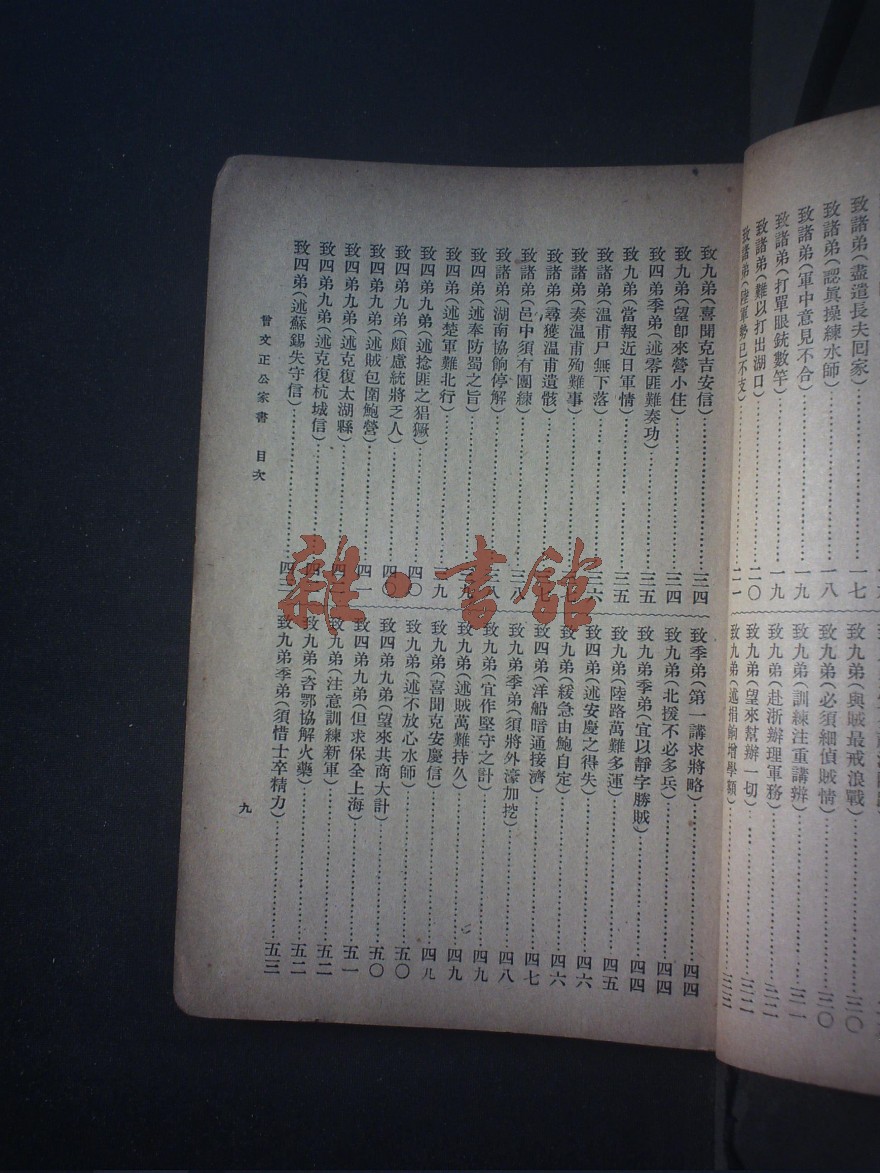 致諸弟(盡遣長夫回家)……一七
致諸弟(認眞操練水師)……一八
致諸弟(軍中意見不合)……一九
致諸弟(打單眼銃數竿)……一九
致諸弟(難以打出湖口)……二〇
致諸弟(陸軍勢已不支)……二一
致九弟(與賊最戒浪戰)……三〇
致九弟(必須細偵賊情)……三〇
致九弟(訓練注重講辨)……三一
致九弟(赴浙辦理軍務)……三二
致九弟(望來幫辦一切)……三二
致九弟(述捐餉增學額)……三三
致九弟(喜聞克吉安信)……三四
致九弟(望卽來營小住)……三四
致四弟季弟(述零匪難奏功)……三五
致九弟(當報近日軍情)……三五
致諸弟(溫甫尸無下落)……三六
致諸弟(奏溫甫殉難事)……
致諸弟(尋獲溫甫遺骸)……
致諸弟(邑中須有團練)……三八
致諸弟(湖南協餉停解)……三八
致四弟(述奉防蜀之旨)……三九
致四弟(述楚軍難北行)……三九
致四弟九弟(述捻匪之猖獗)……四〇
致四弟九弟(頗慮統將乏人)……四〇
致四弟九弟(述賊包圍鮑營)……四一
致四弟九弟(述克復太湖縣)……
致四弟九弟(述克復杭城信)……
致四弟(述蘇錫失守信)……
致季弟(第一講求將略)……四四
致九弟(北援不必多兵)……四四
致九弟季弟(宜以靜字勝賊)……四四
致九弟(陸路萬難多運)……四五
致四弟(述安慶之得失)……四六
致九弟(緩急由鮑自定)……四六
致四弟(洋船暗通接濟)……四七
致九弟季弟(須將外濠加挖)……四八
致九弟(宜作堅守之計)……四九
致九弟(述賊萬難持久)……四九
致九弟(喜聞克安慶信)……四九
致九弟(述不放心水師)……五〇
致四弟九弟(望來共商大計)……五〇
致四弟九弟(但求保全上海)……五一
致九弟(注意訓練新軍)……五二
致九弟(咨鄂協解火藥)……五二
致九弟季弟(須惜士卒精力)……五三
曾文正公家書 目次
九
雜·書館